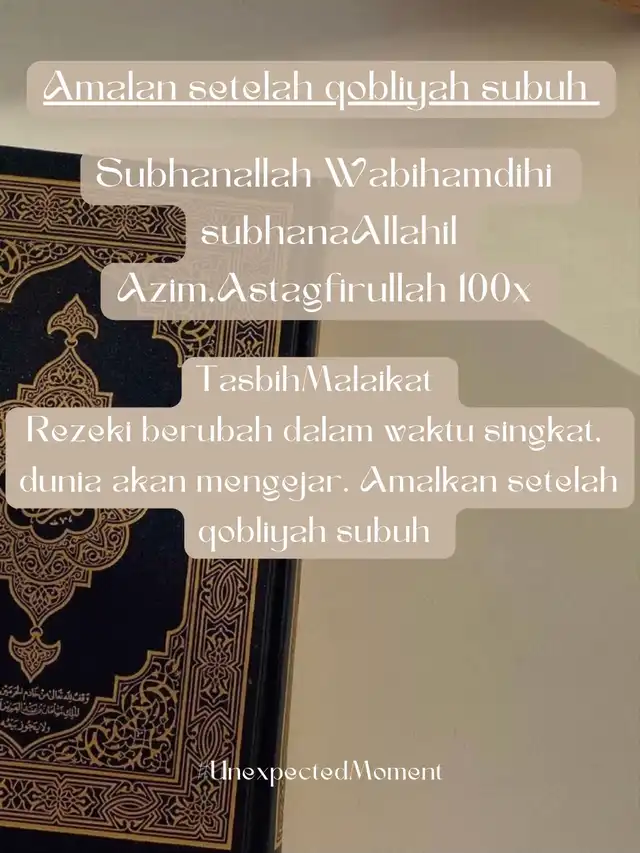 Amalan setelah qobliyah subuh
Subhanallah Wabihamdihi
subhanaAllahil
Azim.Astagfirullah 100x
TasbihMalaikat
Rezeki berubah dalam waktu singkat,
dunia akan mengejar. Amalkan setelah
qobliyah subuh
وقف لله تعالى من خادم الحرمين
ولا يجوز بيعه
#UnexpectedMoment